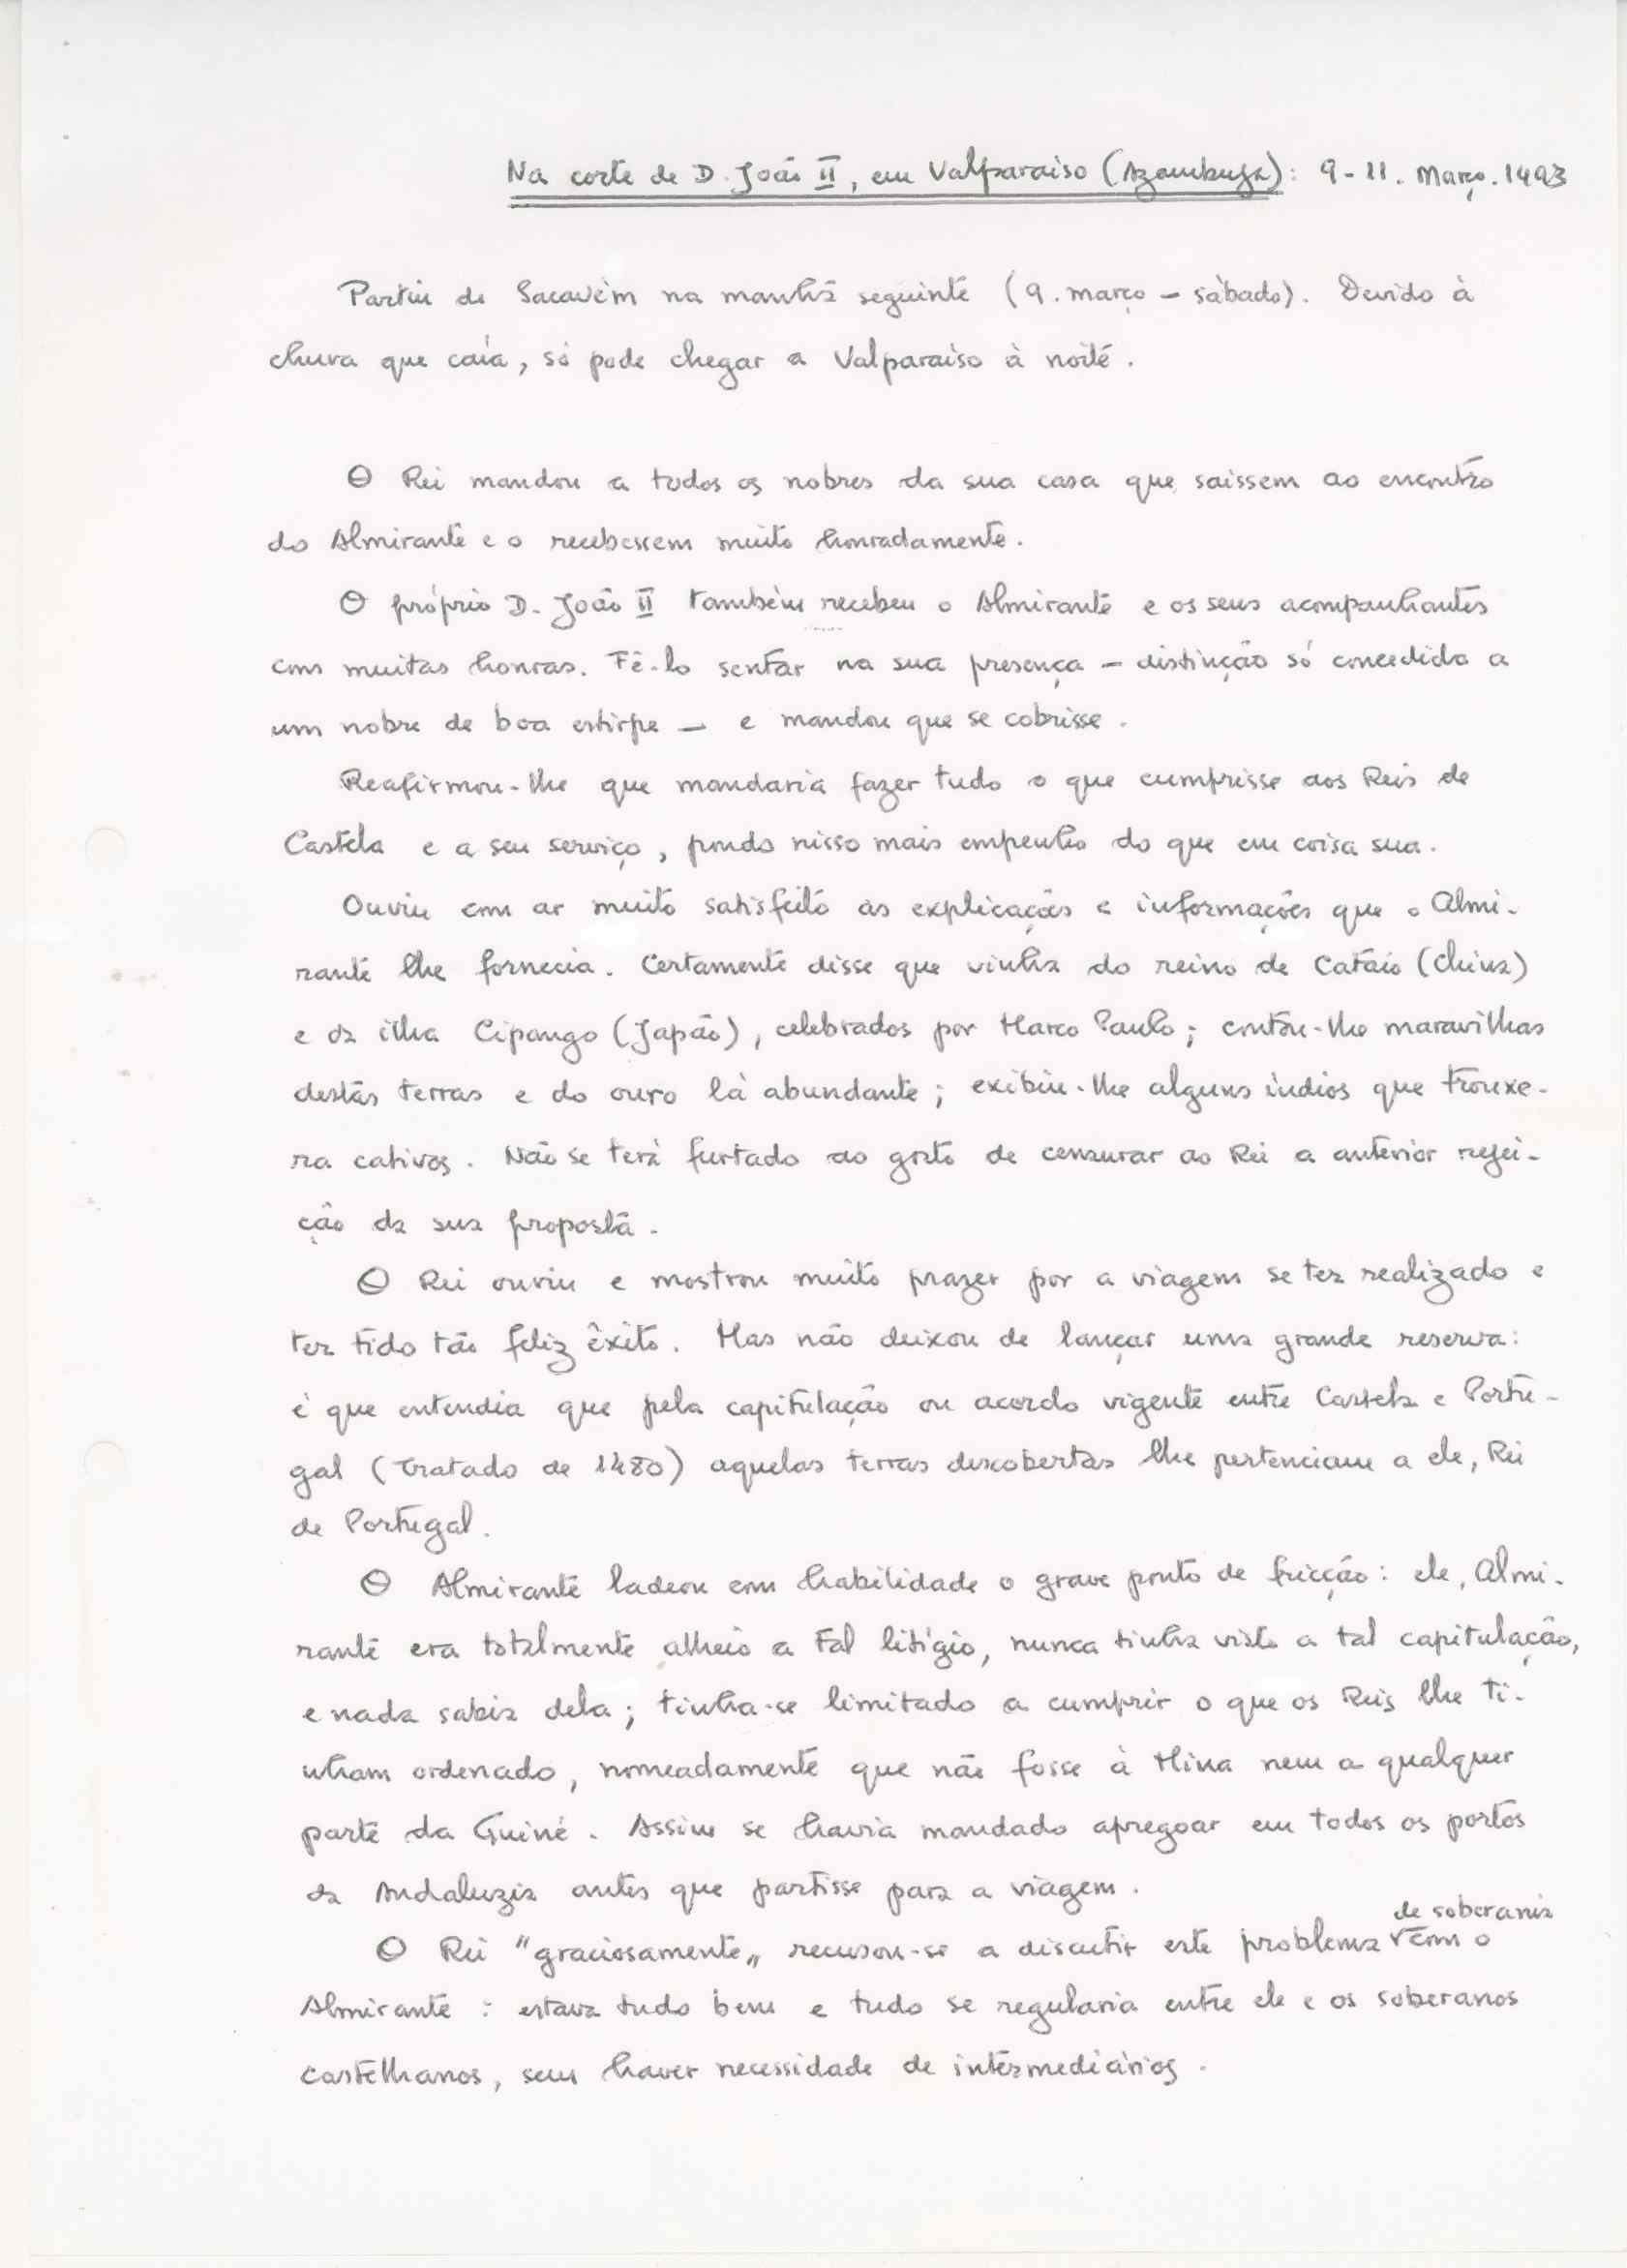 Na corte de D. João II, em Valparaiso (Azambuja): 9-11. Março. 1493
Partiu de Sacavém na manhã seguinte (9. março - sàbado). Devido à
chuva que caía, só pode chegar a Valparaiso à noite.
O Rei mandou a todos os nobres da sua casa que saissem ao encontro
do Almirante e o recebessem muito honradamente.
O próprio D. João II também recebeu o Almirante e os seus acompanhantes
com muitas honras. Fê-lo sentar na sua presença - distinção só concedida a
um nobre de boa estirpe - e mandou que se cobrisse.
Reafirmou-lhe que mandaria fazer tudo o que cumprisse aos Reis de
Castela e a seu serviço, pondo nisso mais empenho do que em coisa sua.
Ouviu com ar muito satisfeito as explicações e informações que o Almi-
rante lhe fornecia. Certamente disse que vinha do reino de Cataio (China)
e da ilha Cipango (Japão), celebrados por Marco Paulo; contou-lhe maravilhas
destas terras e do ouro lá abundante; exibiu-lhe alguns índios que trouxe-
ra cativos. Não se terá furtado ao gosto de censurar ao Rei a anterior rejei-
ção da sua proposta.
O Rei ouviu e mostrou muito prazer por a viagem se ter realizado e
ter tido tão feliz êxito. Mas não deixou de lançar uma grande reserva:
é que entendia que pela capitulação ou acordo vigente entre Castela e Portu-
gal (Tratado de 1480) aquelas terras descobertas lhe pertenciam a ele, Rei
de Portugal.
O Almirante ladeou com habilidade o grave ponto de fricção: ele, Almi-
rante era totalmente alheio a tal litígio, nunca tinha visto a tal capitulação,
e nada sabia dela; tinha-se limitado a cumprir o que os Reis lhe ti-
nham ordenado, nomeadamente que não fosse à Mina nem a qualquer
parte da Guiné. Assim se havia mandado apregoar em todos os portos
da Andaluzia antes que partisse para a viagem.
de soberania
O Rei "graciosamente" recusou-se a discutir este problema com o
Almirante: estava tudo bem e tudo se regularia entre ele e os soberanos
castelhanos, sem haver necessidade de intermediários.